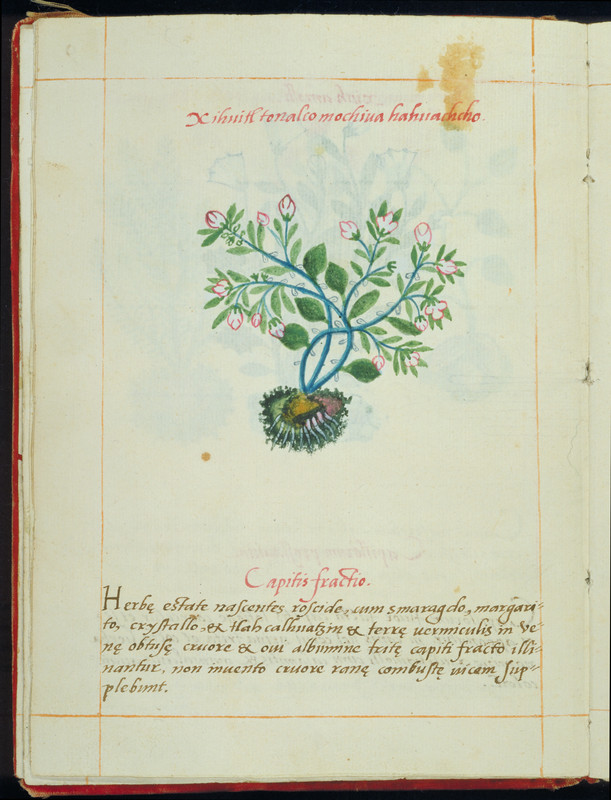 Xihuitl tonalco mochiva hahuachcho.
Capitis fractio.
Herbę estate nascentes roscide, cum smaragdo, margari-
to, crystallo, & tlahcalhuatzin & terrę vermiculis in ve-
nę obtusę cruore & oui albumine tritę capiti fracto illi-
nantur, non inuento cruore ranę combustę uicem sup-
plebunt.